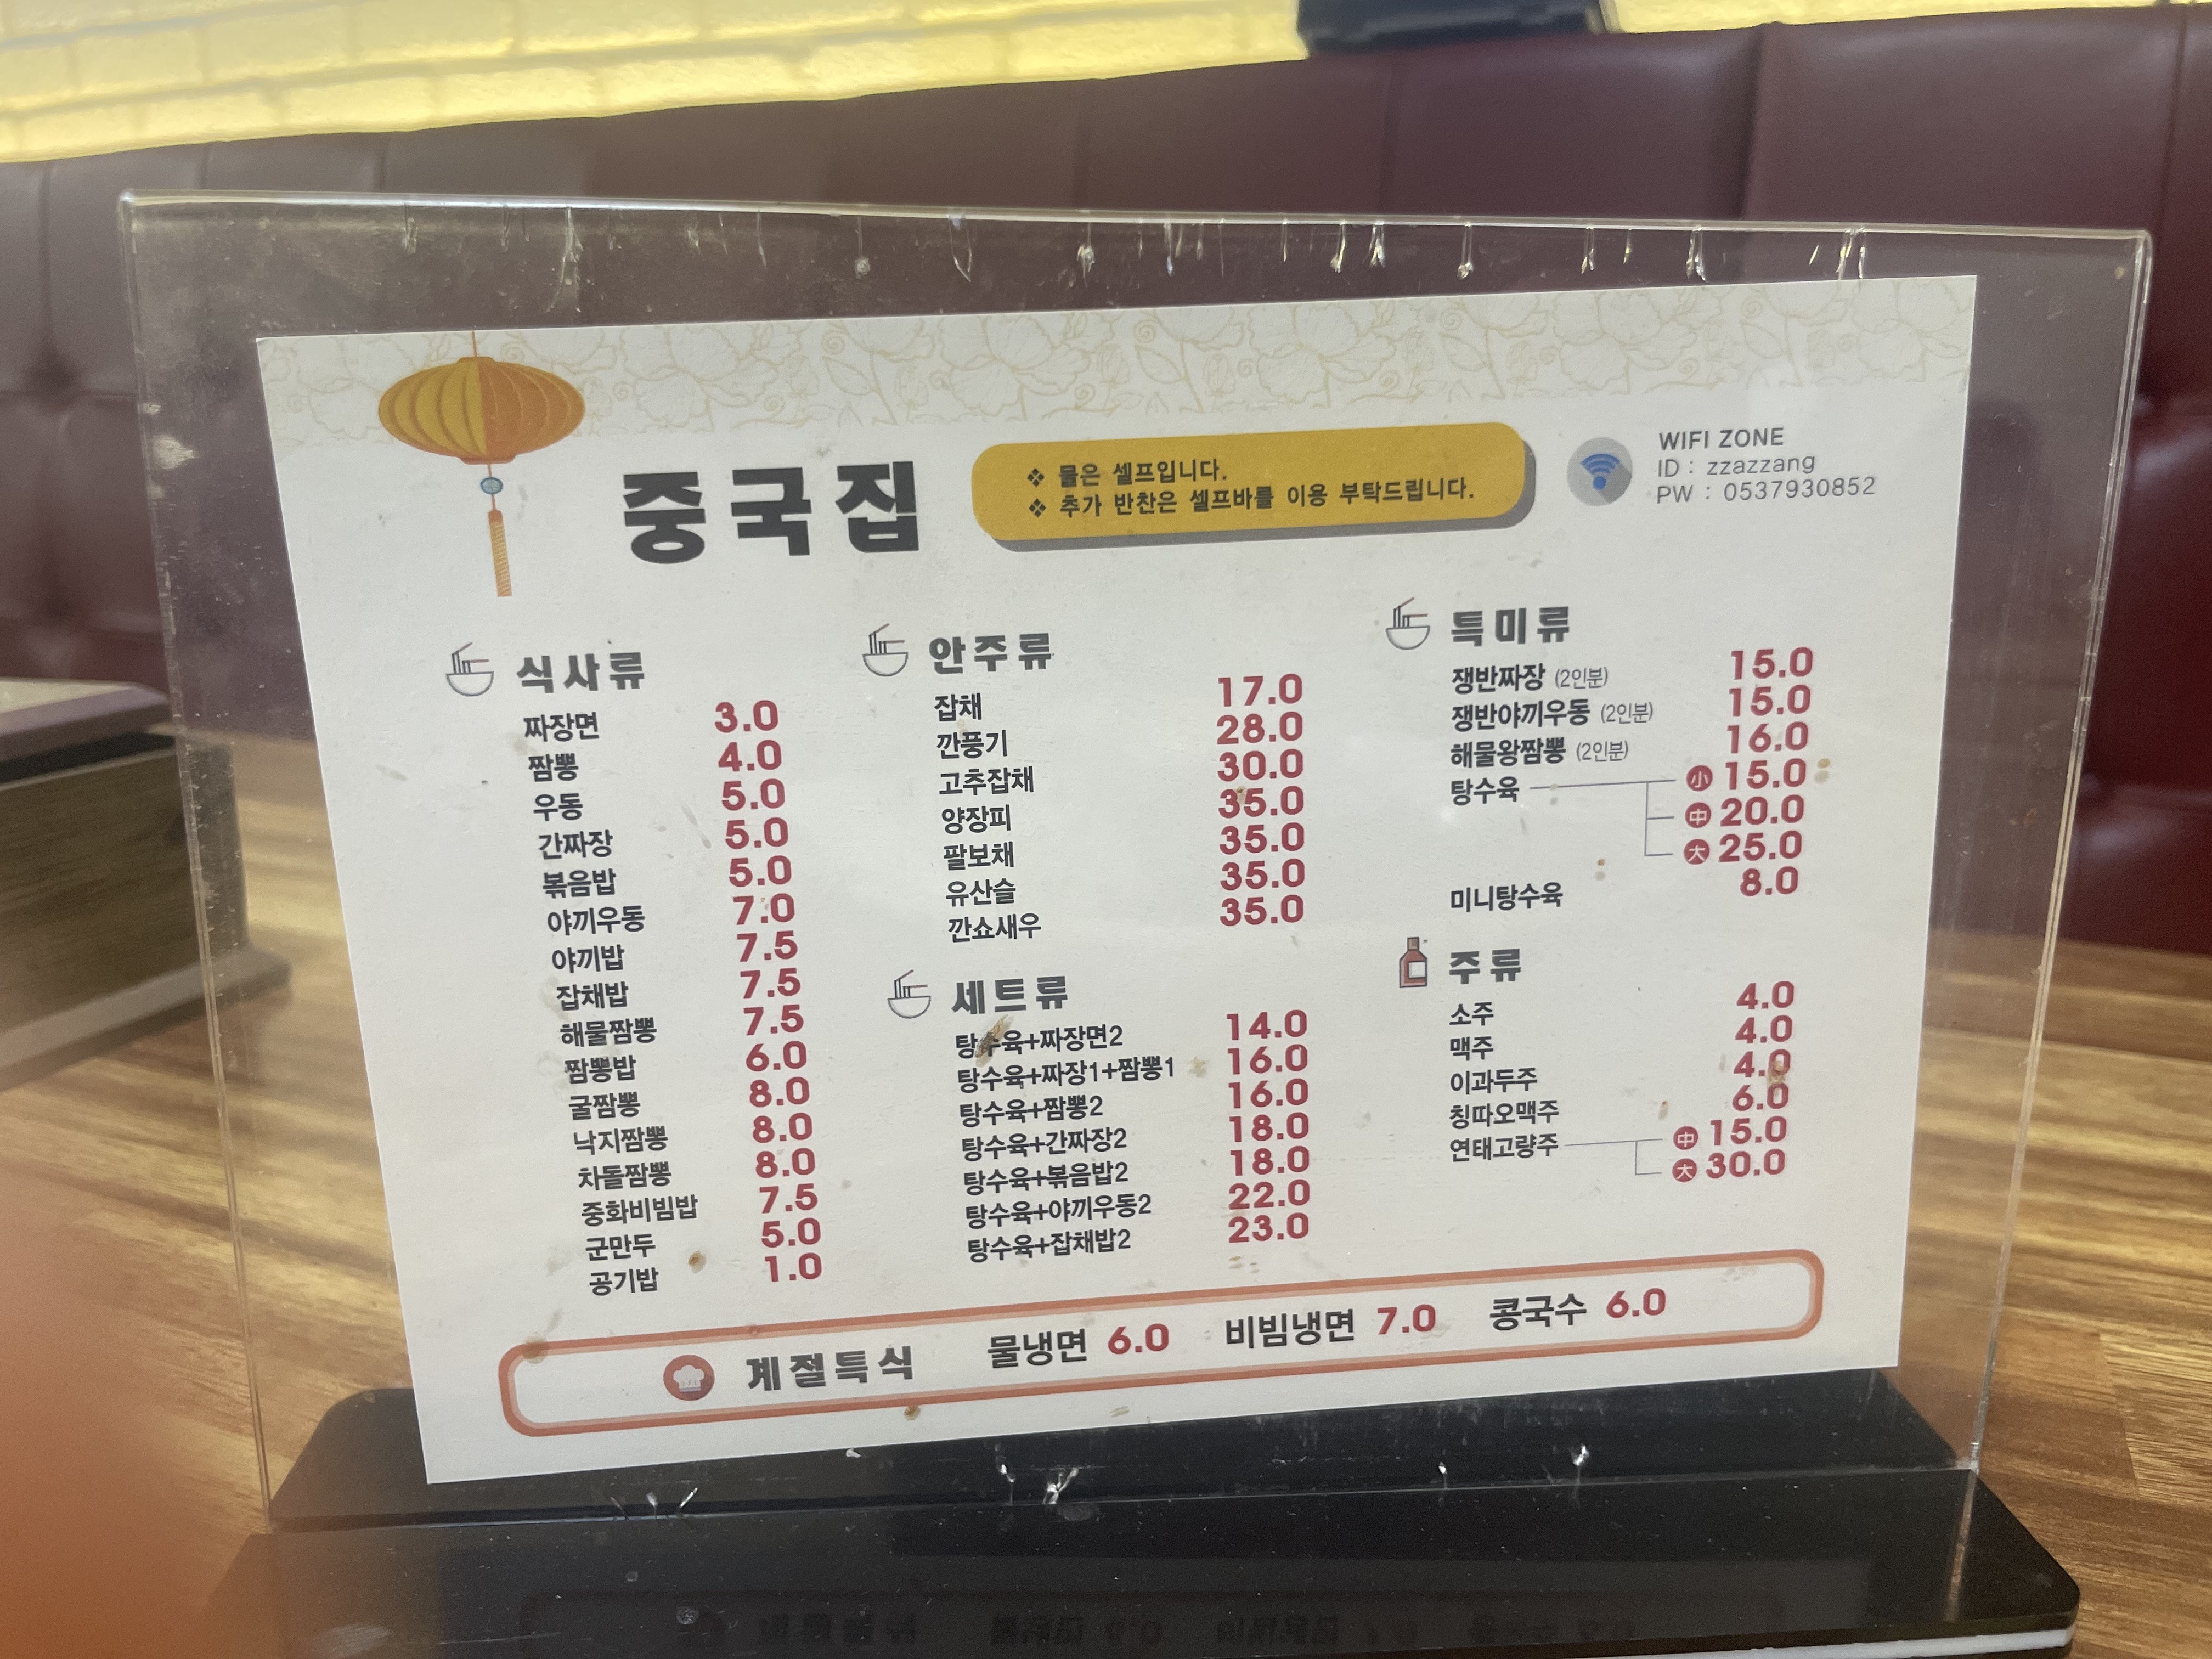 중국집
❖ 물은 셀프입니다.
❖ 추가 반찬은 셀프바를 이용 부탁드립니다.
WIFI ZONE
ID : zzazzang
PW : 0537930852
식사류
짜장면 3.0
짬뽕 4.0
우동 5.0
간짜장 5.0
볶음밥 5.0
야끼우동 7.0
야끼밥 7.5
잡채밥 7.5
해물짬뽕 7.5
짬뽕밥 6.0
굴짬뽕 8.0
낙지짬뽕 8.0
차돌짬뽕 8.0
중화비빔밥 7.5
군만두 5.0
공기밥 1.0
안주류
잡채 17.0
깐풍기 28.0
고추잡채 30.0
양장피 35.0
팔보채 35.0
유산슬 35.0
깐쇼새우 35.0
세트류
탕수육+짜장면2 14.0
탕수육+짜장1+짬뽕1 16.0
탕수육+짬뽕2 16.0
탕수육+간짜장2 18.0
탕수육+볶음밥2 18.0
탕수육+야끼우동2 22.0
탕수육+잡채밥2 23.0
특미류
쟁반짜장 (2인분) 15.0
쟁반야끼우동 (2인분) 15.0
해물왕짬뽕 (2인분) 16.0
탕수육 小 15.0
中 20.0
大 25.0
미니탕수육 8.0
주류
소주 4.0
맥주 4.0
이과두주 4.0
칭따오맥주 6.0
연태고량주 中 15.0
大 30.0
계절특식 물냉면 6.0 비빔냉면 7.0 콩국수 6.0